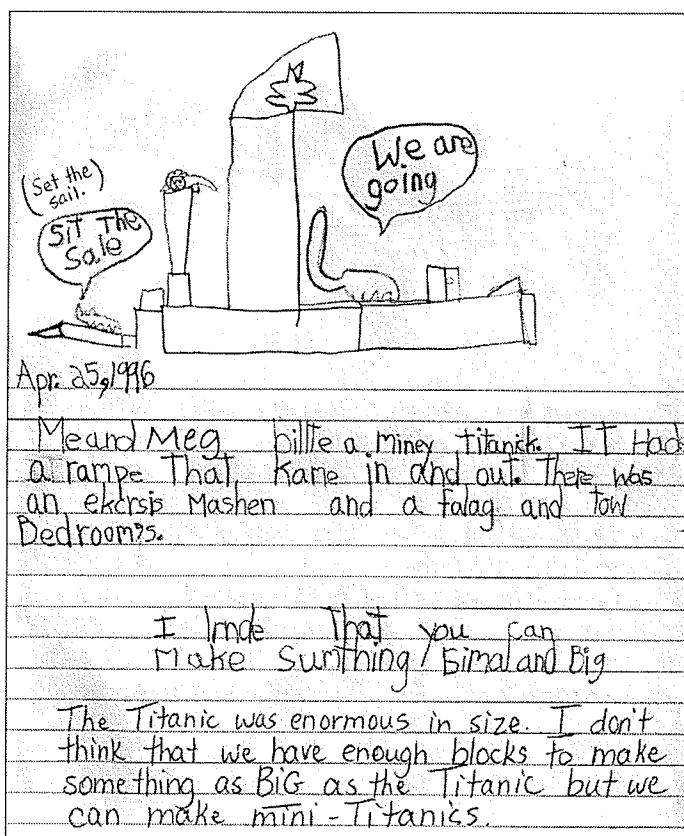 (Set the
sail.)
SiT The
Sale
We are
going
Apr. 25, 1996
Me and Meg billte a miney titanick. IT Had
a rampe That, Kame in and out. There was
an ekcrsis Mashen and a falag and tow
Bedrooms.
I lrnde That you can
Make Sumthing Simal and Big
The Titanic was enormous in size. I don't
think that we have enough blocks to make
something as BiG as the Titanic but we
can make mini-Titanics.